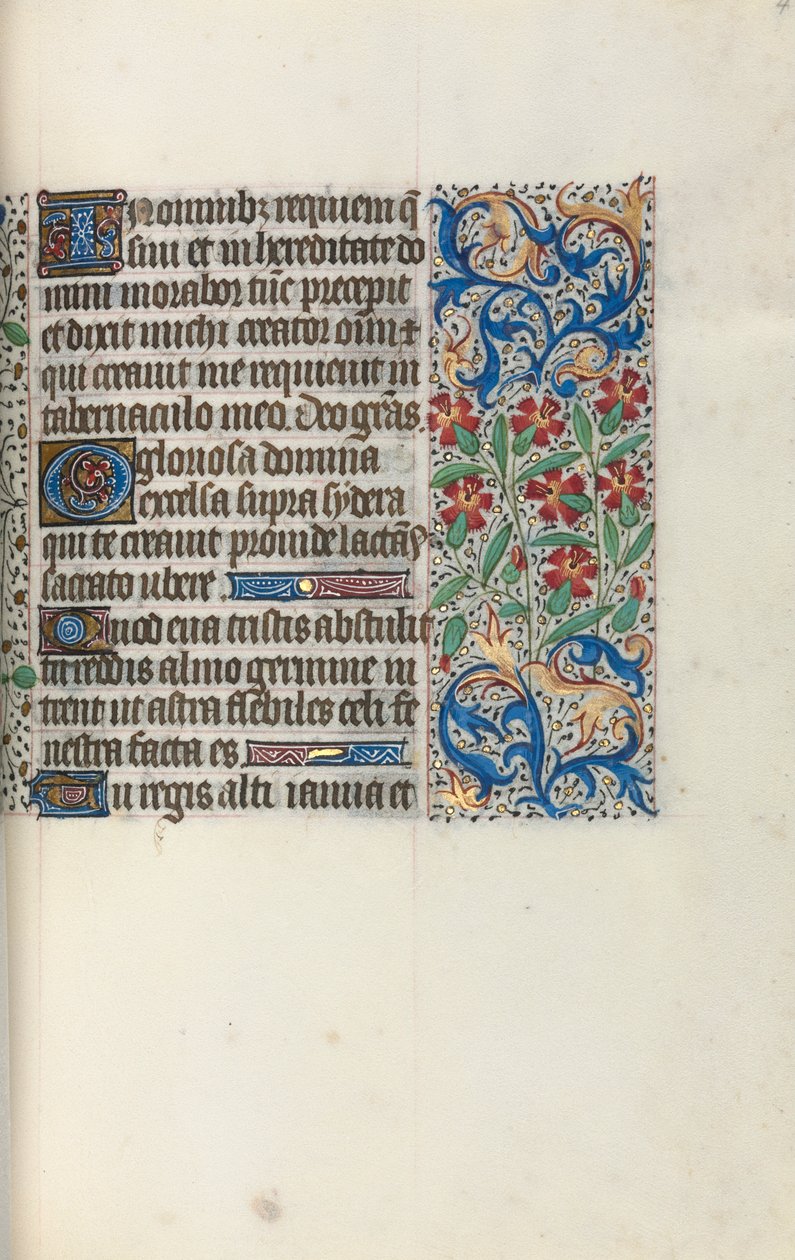 In omnibꝫ requiem q̄
siui et in hereditate do
mini morabor tūc precepit
et dixit michi creator oīm ⁊
qui creauit me requieuit in
tabernaculo meo. Deo gr̄as
O gloriosa domina
excelsa supra sydera
qui te creauit prouide lactas
sacrato ubere
Quod eua tristis abstulit
tu reddis almo germine in
trent ut astra flebiles celi fe
nestra facta es
Tu regis alti ianua et